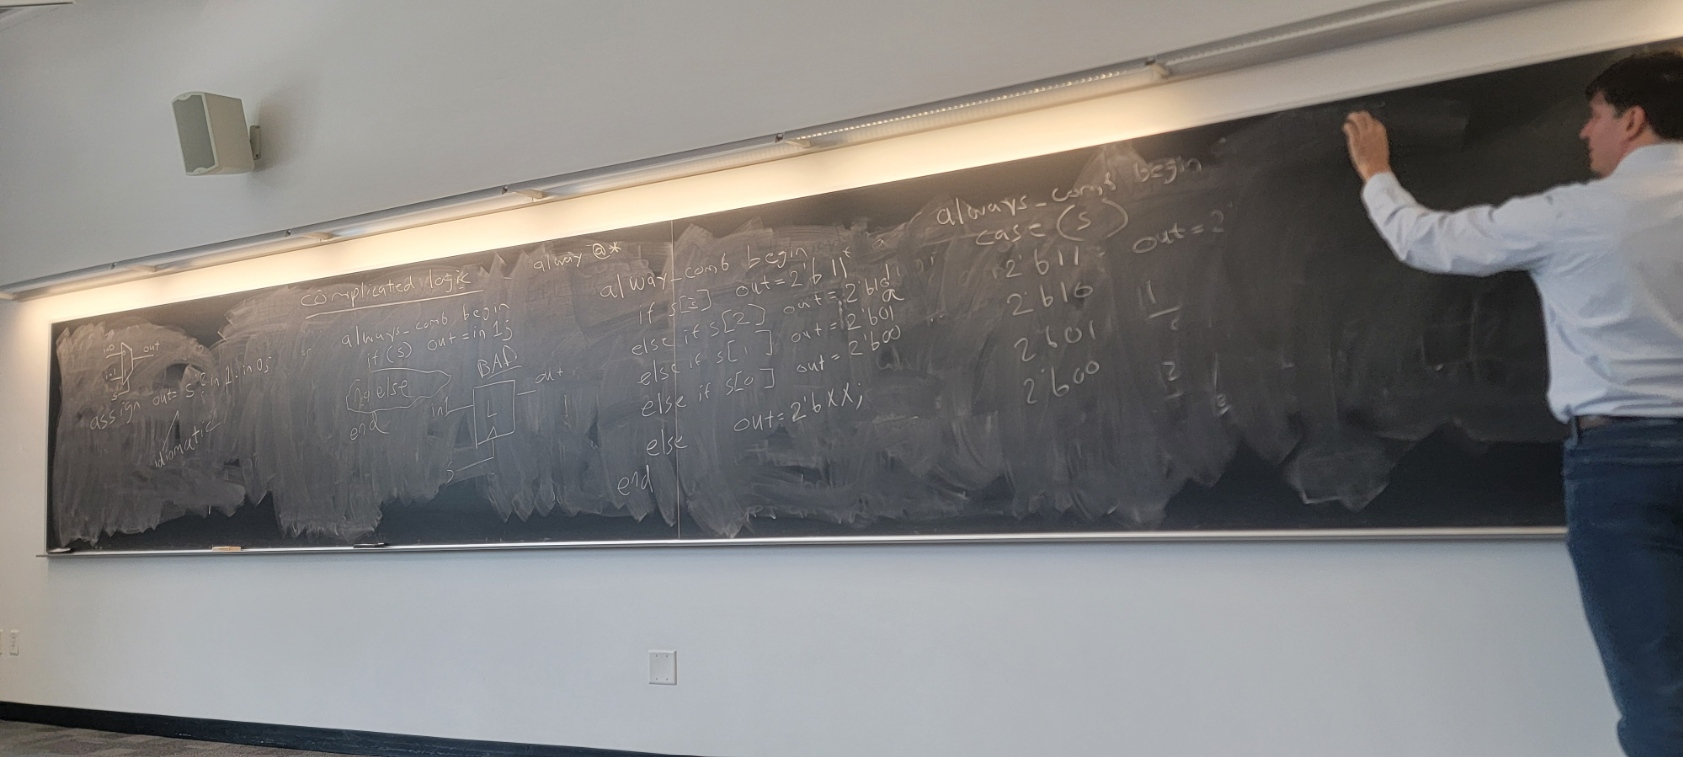 in0
out
in1
s
assign out = s ? in1 : in0;
idiomatic
complicated logic
always_comb begin
if (s) out = in1;
no else
end
BAD
in1
L
out
s
alway @*
alway_comb begin
if s[3] out = 2'b11
else if s[2] out = 2'b10
else if s[1] out = 2'b01
else if s[0] out = 2'b00
else out = 2'bXX;
end
always_comb begin
case (s)
2'b11 out = 2'
2'b10
2'b01
2'b00